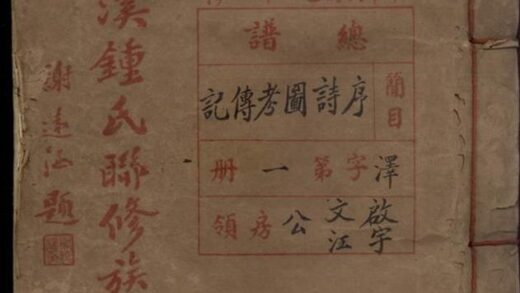 總譜
簡目
序詩圖考傳記
澤字第一册
啟宇
文江
公房領
溪鍾氏聯修族
謝遠涵題